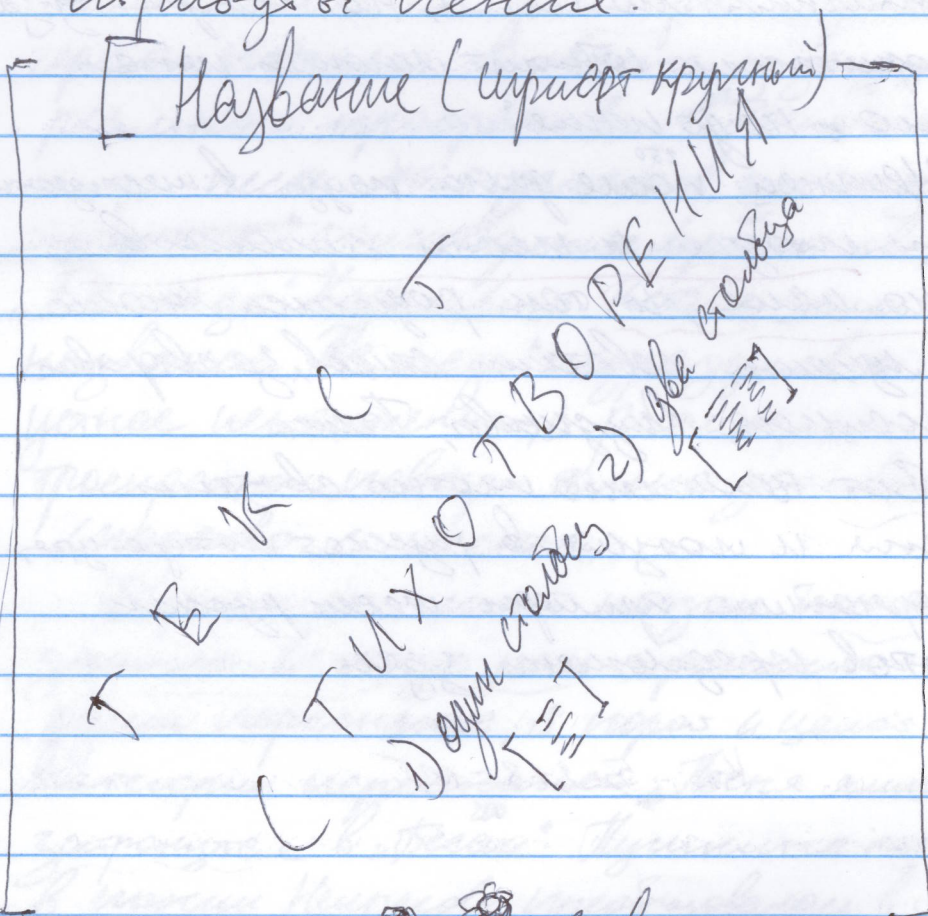 Название (шрифт крупный)
ТЕКСТ
СТИХОТВОРЕНИЯ
1) один столбец
2) два столбца